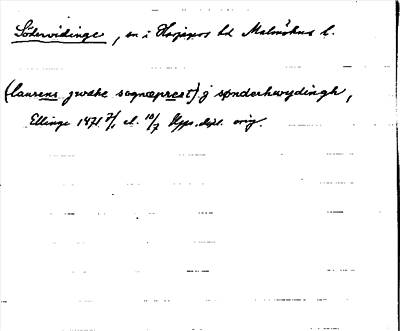 Södervidinge, sn i Harjagers hd Malmöhus l.
(laurens jwake sognæprest) j sønderhwydingh,
Ellinge 1471 7/1 el. 10/7 dipl. orig.